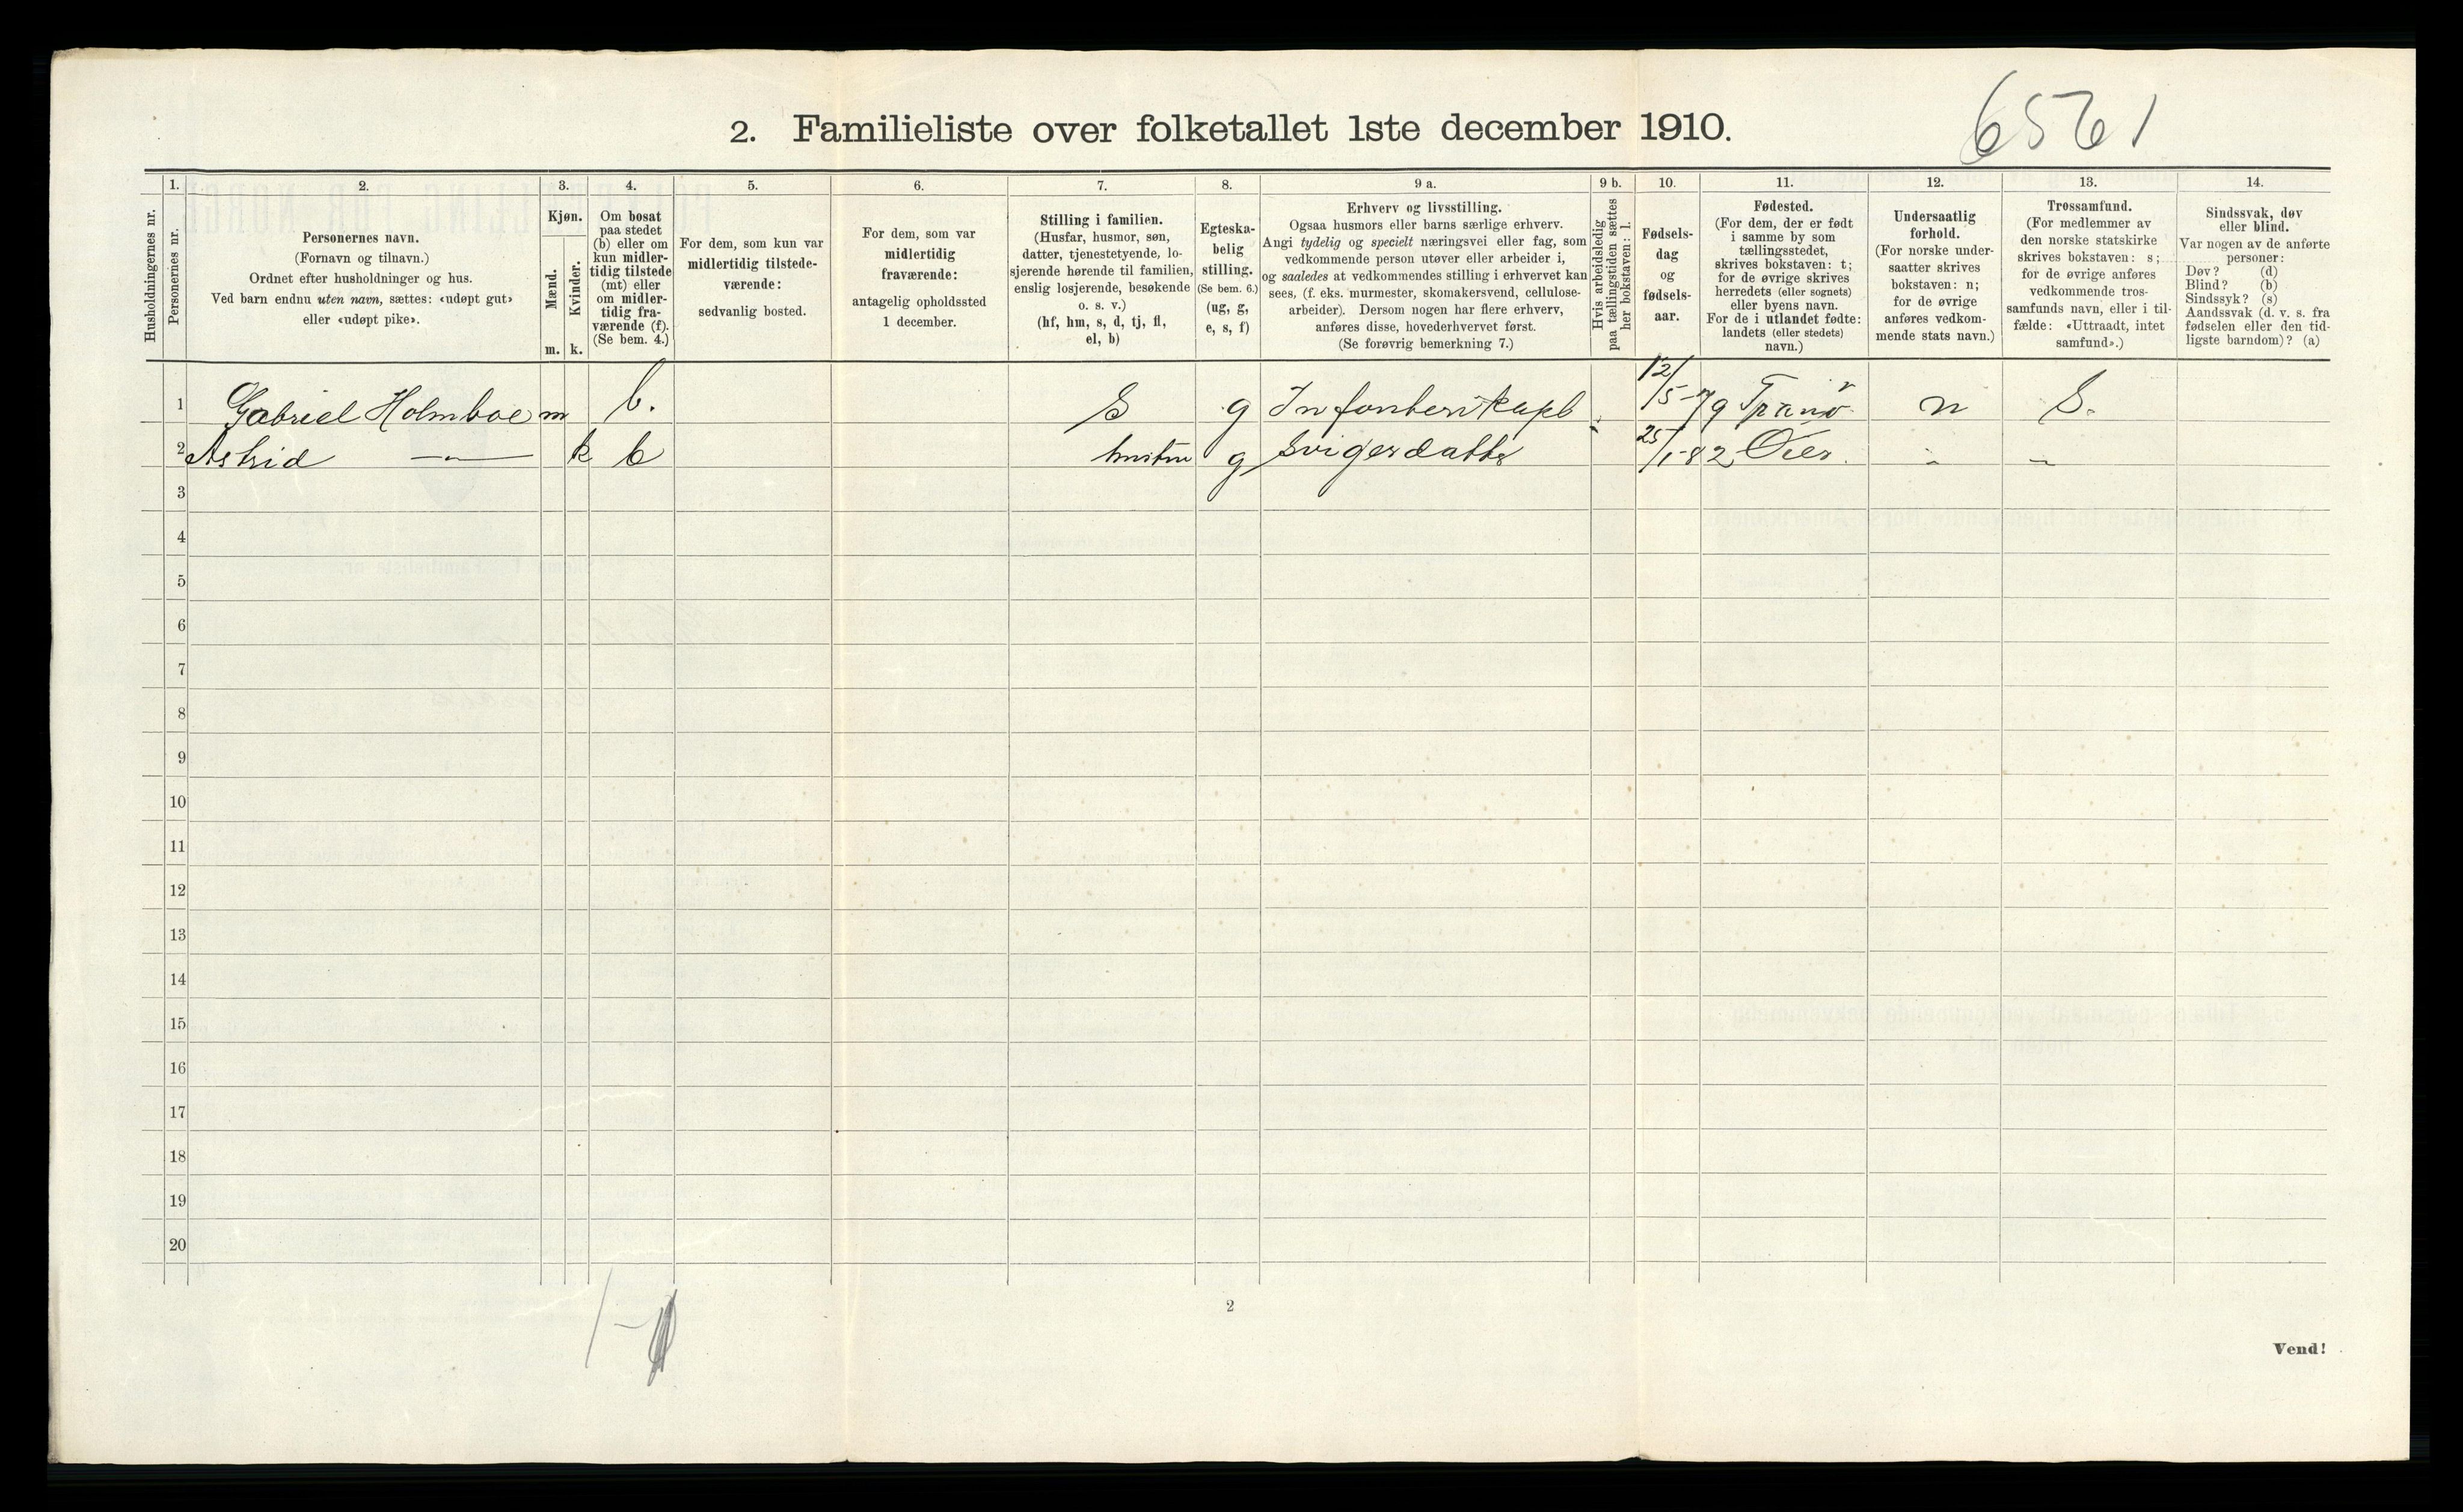 6561
2. Familieliste over folketallet 1ste december 1910.
1. 2. 3. 4. 5. 6. 7. 8. 9 a. 9 b. 10. 11. 12. 13. 14.
Husholdningernes nr.
Personernes nr.
Personernes navn.
(Fornavn og tilnavn.)
Ordnet efter husholdninger og hus.
Ved barn endnu uten navn, sættes: «udøpt gut»
eller «udøpt pike».
Kjøn.
Mænd.
Kvinder.
m. k.
Om bosat
paa stedet
(b) eller om
kun midler-
tidig tilstede
(mt) eller
om midler-
tidig fra-
værende (f).
(Se bem. 4.)
For dem, som kun var
midlertidig tilstede-
værende:
sedvanlig bosted.
For dem, som var
midlertidig
fraværende:
antagelig opholdssted
1 december.
Stilling i familien.
(Husfar, husmor, søn,
datter, tjenestetyende, lo-
sjerende hørende til familien,
enslig losjerende, besøkende
o. s. v.)
(hf, hm, s, d, tj, fl,
el, b)
Egteska-
belig
stilling.
(Se bem. 6.)
(ug, g,
e, s, f)
Erhverv og livsstilling.
Ogsaa husmors eller barns særlige erhverv.
Angi tydelig og specielt næringsvei eller fag, som
vedkommende person utøver eller arbeider i,
og saaledes at vedkommendes stilling i erhvervet kan
sees, (f. eks. murmester, skomakersvend, cellulose-
arbeider). Dersom nogen har flere erhverv,
anføres disse, hovederhvervet først.
(Se forøvrig bemerkning 7.)
Hvis arbeidsledig
paa tællingstiden sættes
her bokstaven: l.
Fødsels-
dag
og
fødsels-
aar.
Fødested.
(For dem, der er født
i samme by som
tællingsstedet,
skrives bokstaven: t;
for de øvrige skrives
herredets (eller sognets)
eller byens navn.
For de i utlandet fødte:
landets (eller stedets)
navn.)
Undersaatlig
forhold.
(For norske under-
saatter skrives
bokstaven: n;
for de øvrige
anføres vedkom-
mende stats navn.)
Trossamfund.
(For medlemmer av
den norske statskirke
skrives bokstaven: s;
for de øvrige anføres
vedkommende tros-
samfunds navn, eller i til-
fælde: «Uttraadt, intet
samfund».)
Sindssvak, døv
eller blind.
Var nogen av de anførte
personer:
Døv? (d)
Blind? (b)
Sindssyk? (s)
Aandssvak (d. v. s. fra
fødselen eller den tid-
ligste barndom)? (a)
1 Gabriel Holmboe m b. S g Infanterikapt 12/5-79 Tranø n S.
2 Astrid —"— k b g Svigerdatter 25/1-82 Øier. " "
3
4
5
6
7
8
9
10
11
12
13
14
15
16
17
18
19
20
2
Vend!